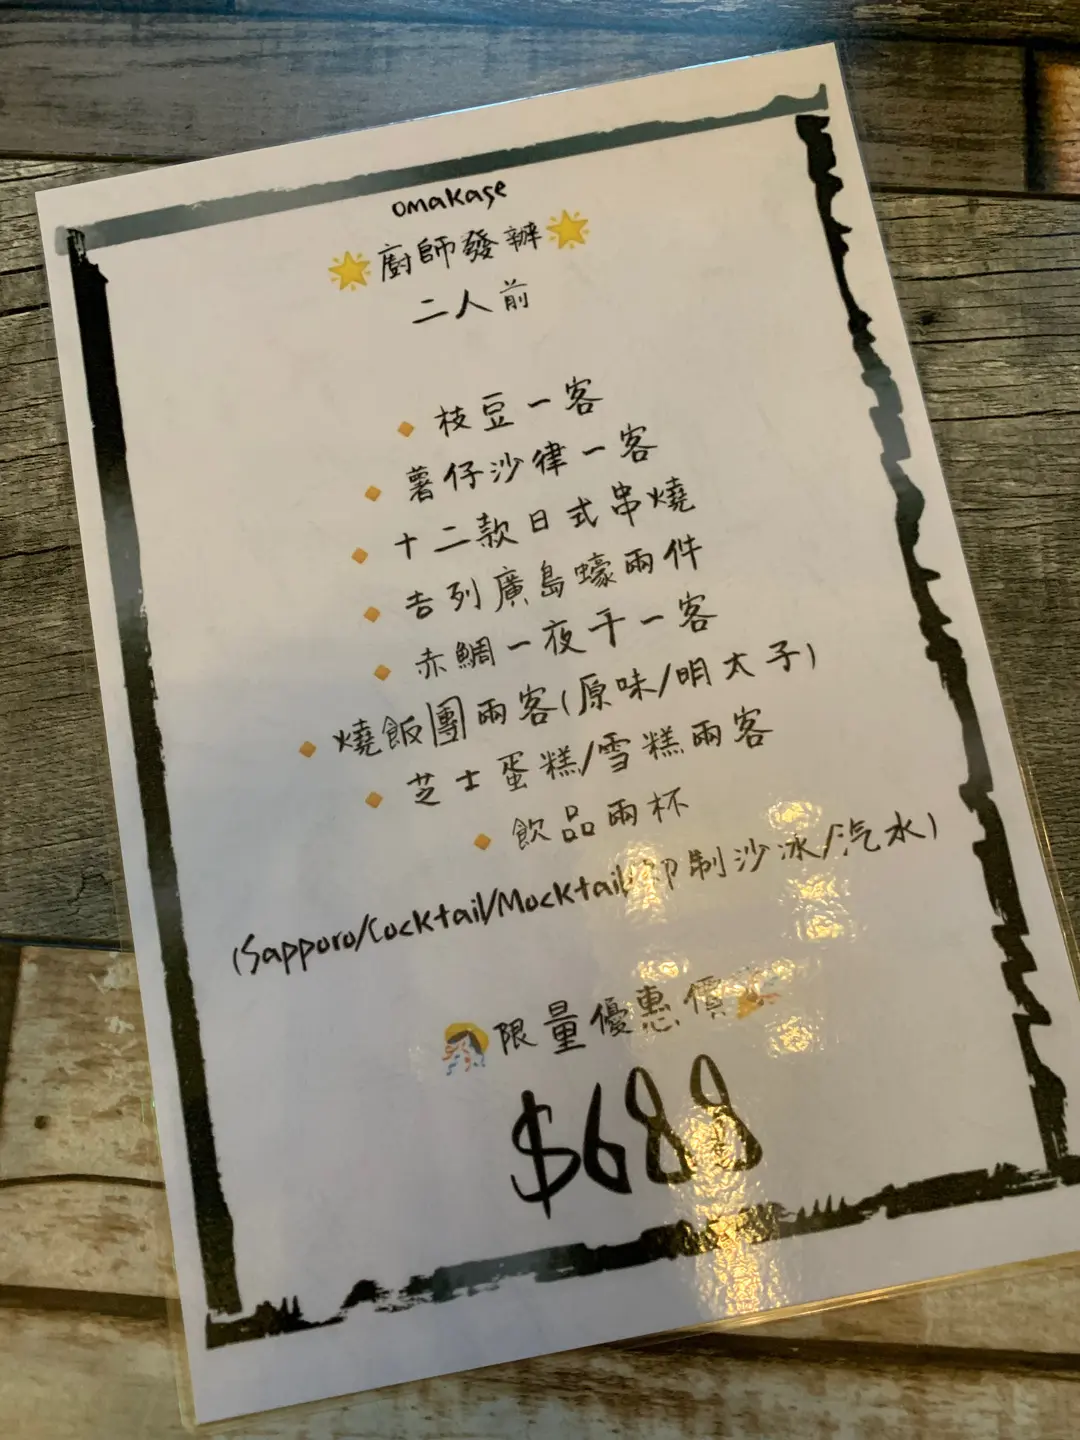 omakase
廚師發辦
二人前
枝豆一客
薯仔沙律一客
十二款日式串燒
吉列廣島蠔兩件
赤鯛一夜干一客
燒飯團兩客(原味/明太子)
芝士蛋糕/雪糕兩客
飲品兩杯
(Sapporo/Cocktail/Mocktail/即制沙冰/汽水)
限量優惠價
$688